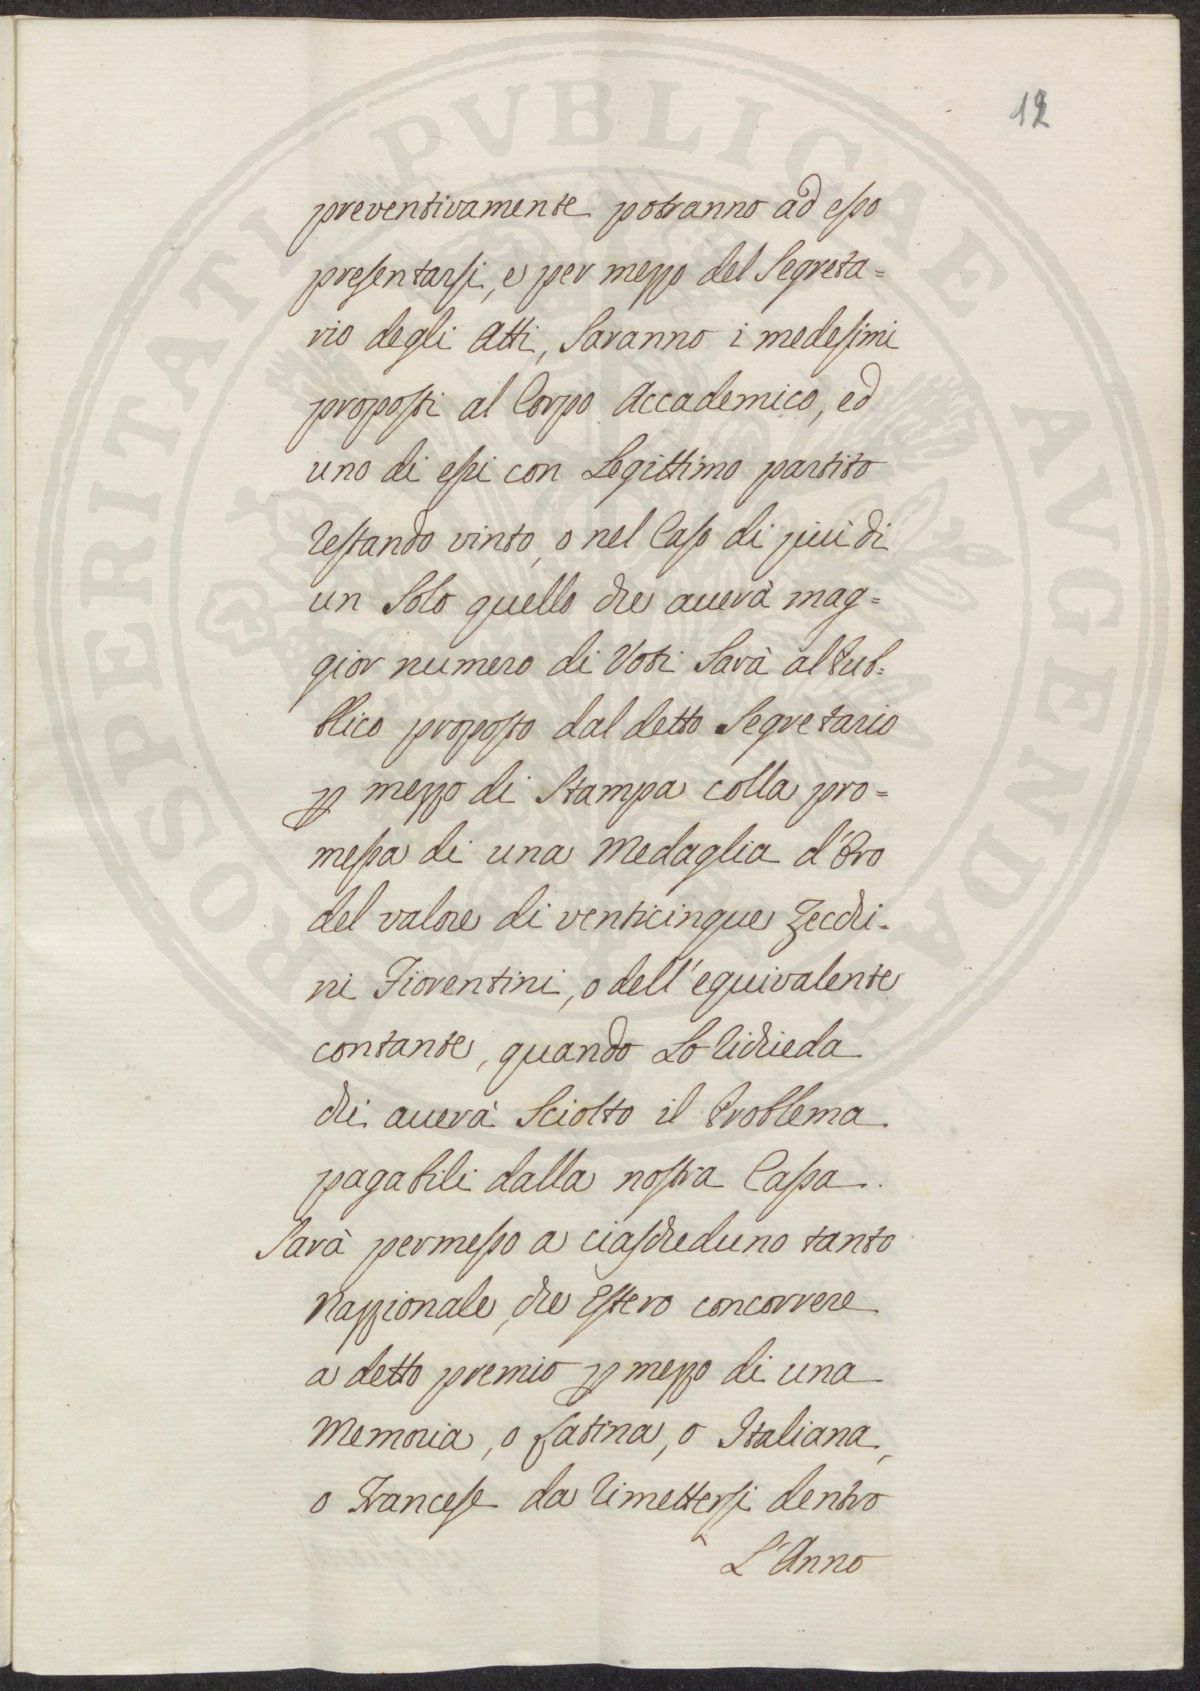 12
PROSPERITATI PVBLICAE AVGENDAE
preventivamente potranno ad esso
presentarsi, e per mezzo del Segreta=
rio degli Atti, Saranno i medesimi
proposti al Corpo Accademico, ed
uno di essi con Legittimo partito
restando vinto, o nel Caso di più di
un Solo quello che averà mag=
gior numero di Voti Sarà al Pub=
blico proposto dal detto Segretario
p mezzo di Stampa colla pro=
messa di una Medaglia d'Oro
del valore di venticinque Zecchi=
ni Fiorentini, o dell'equivalente
contante, quando Lo richieda
chi averà Sciolto il Problema
pagabili dalla nostra Cassa.
Sarà permesso a ciascheduno tanto
Nazzionale, che Estero concorrere
a detto premio p mezzo di una
Memoria, o Latina, o Italiana,
o Francese da rimettersi dentro
L'Anno